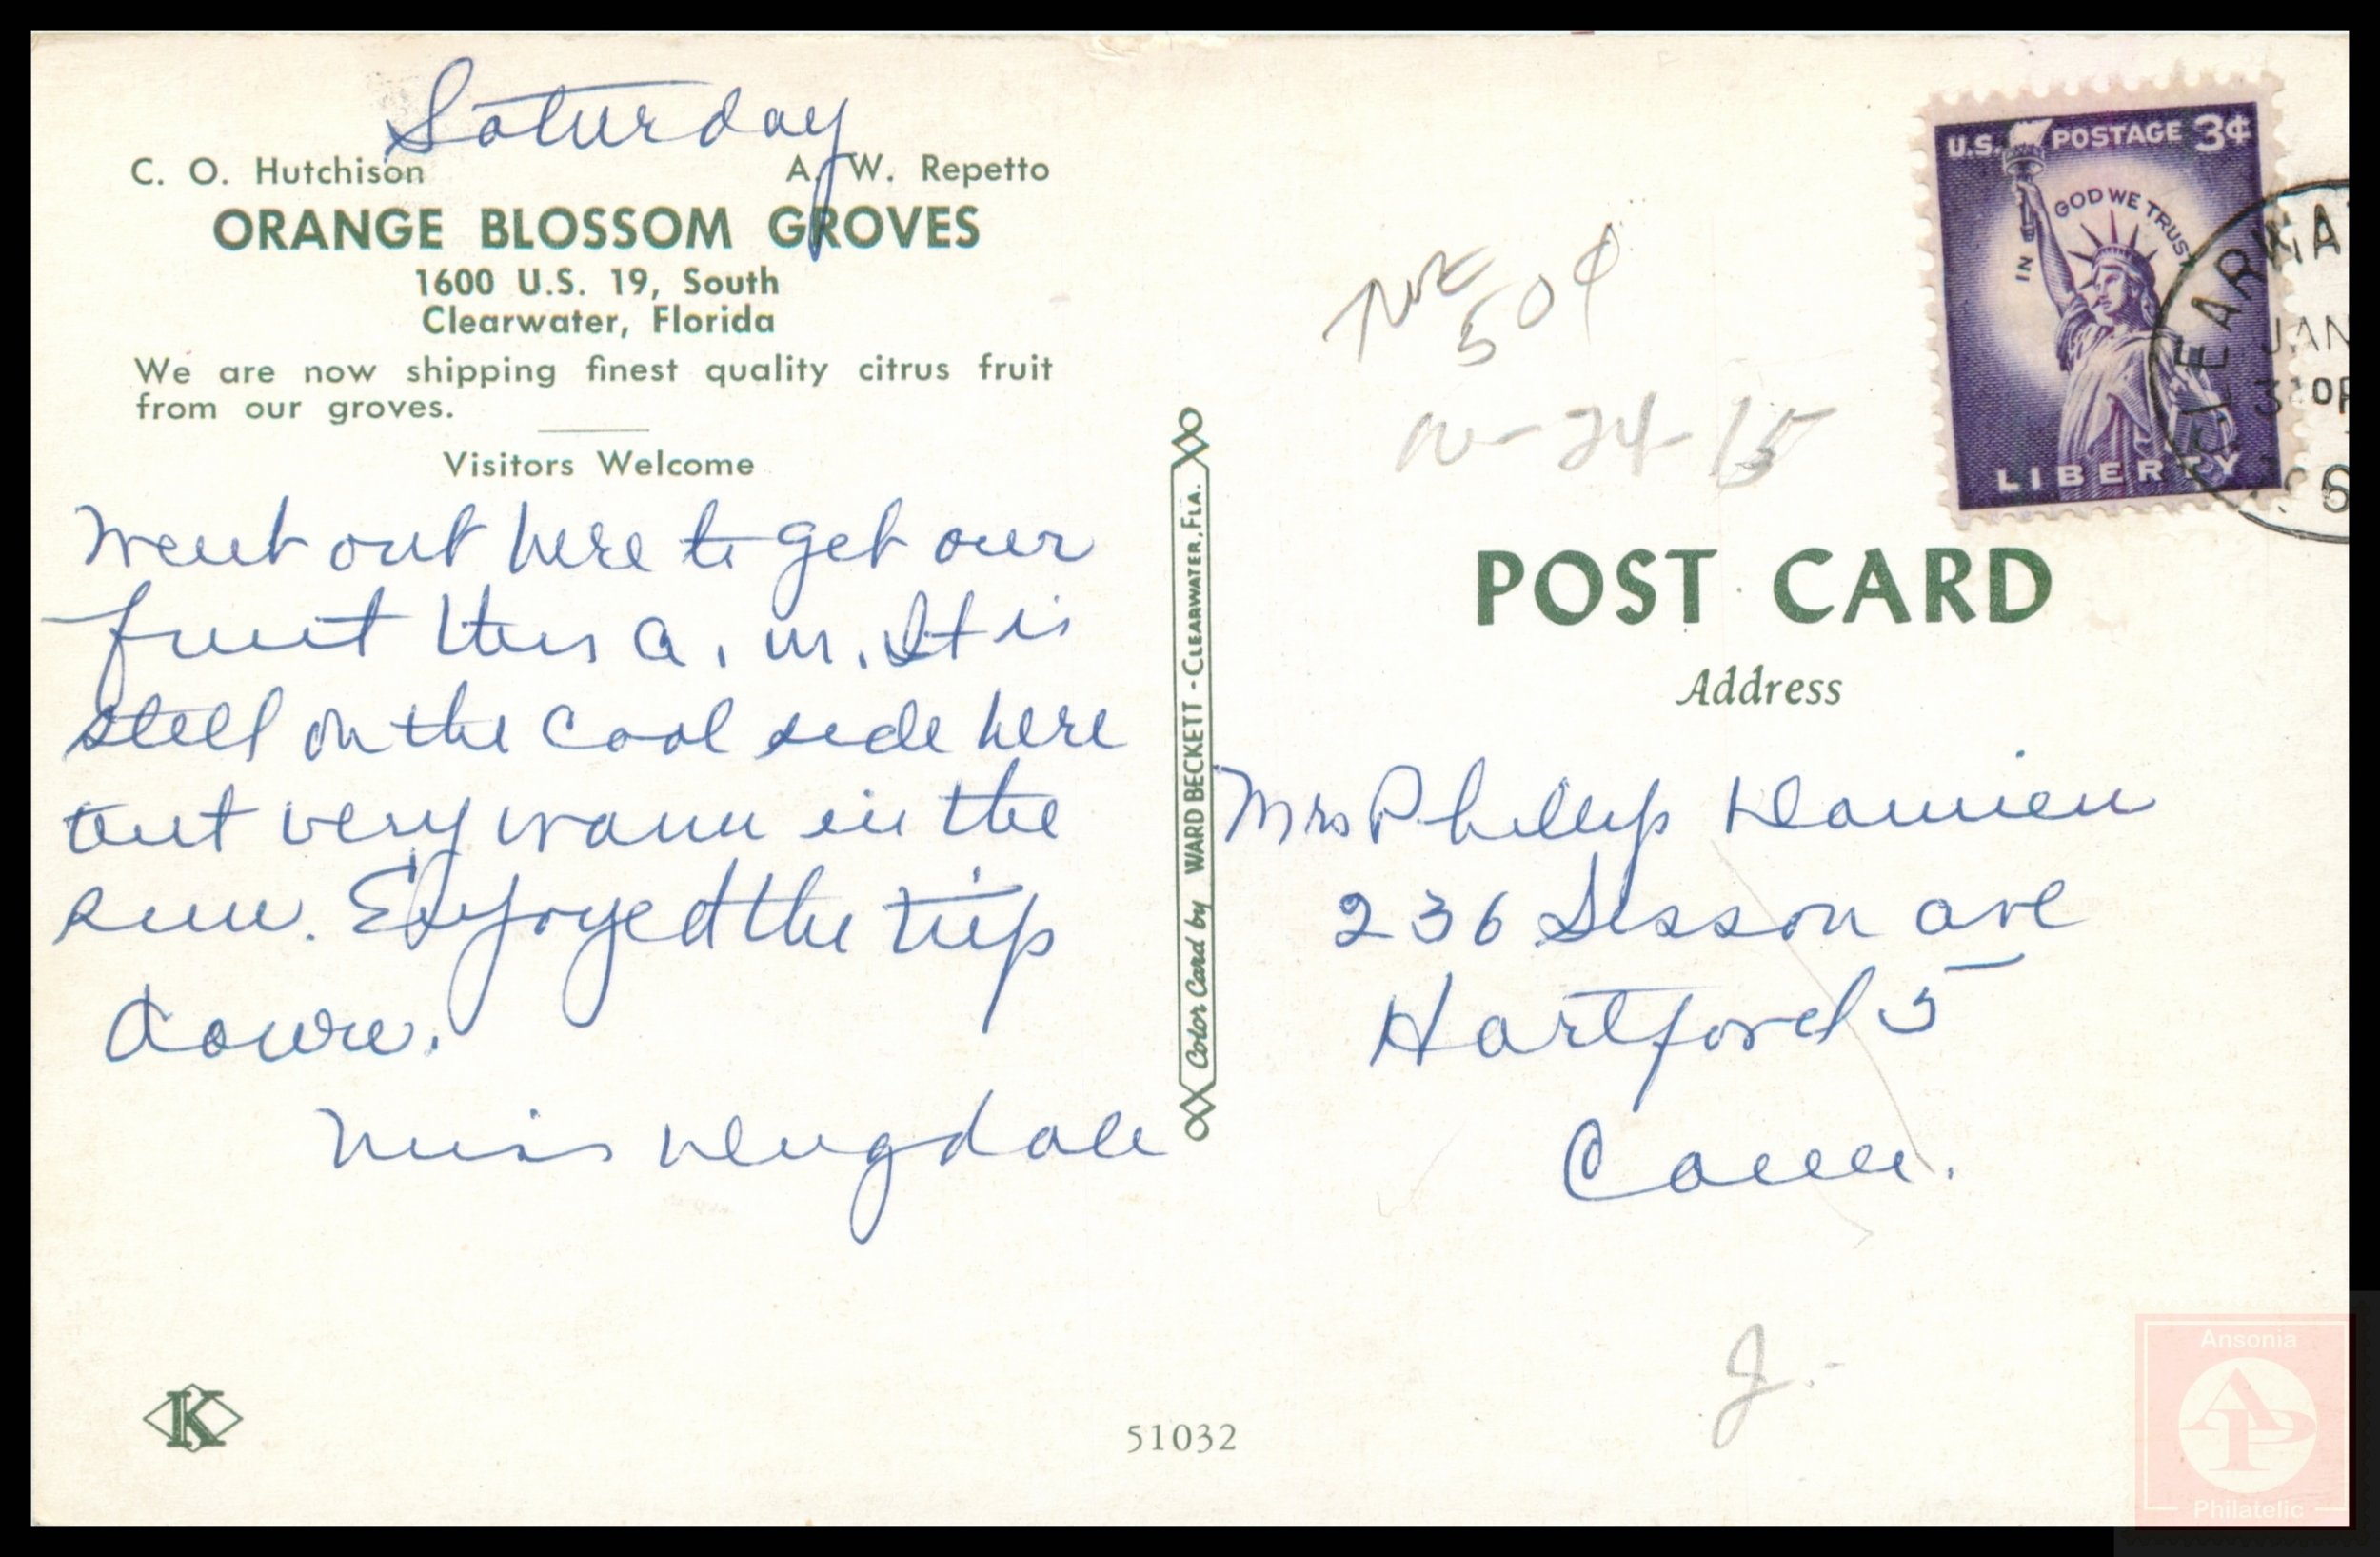 Saturday
C. O. Hutchison A. W. Repetto
ORANGE BLOSSOM GROVES
1600 U.S. 19, South
Clearwater, Florida
We are now shipping finest quality citrus fruit
from our groves.
Visitors Welcome
Went out here to get our
fruit this a.m. It is
still on the cool side here
but very warm in the
sun. Enjoyed the trip
down.
Miss Dugdale
Color Card by WARD BECKETT - CLEARWATER, FLA.
K
51032
50¢
24-15
U.S. POSTAGE 3¢
IN GOD WE TRUST
LIBERTY
CLEARWA
JAN
POST CARD
Address
Mrs Phillip Damien
236 Sisson Ave
Hartford 5
Conn.
J.
Ansonia
AP
Philatelic